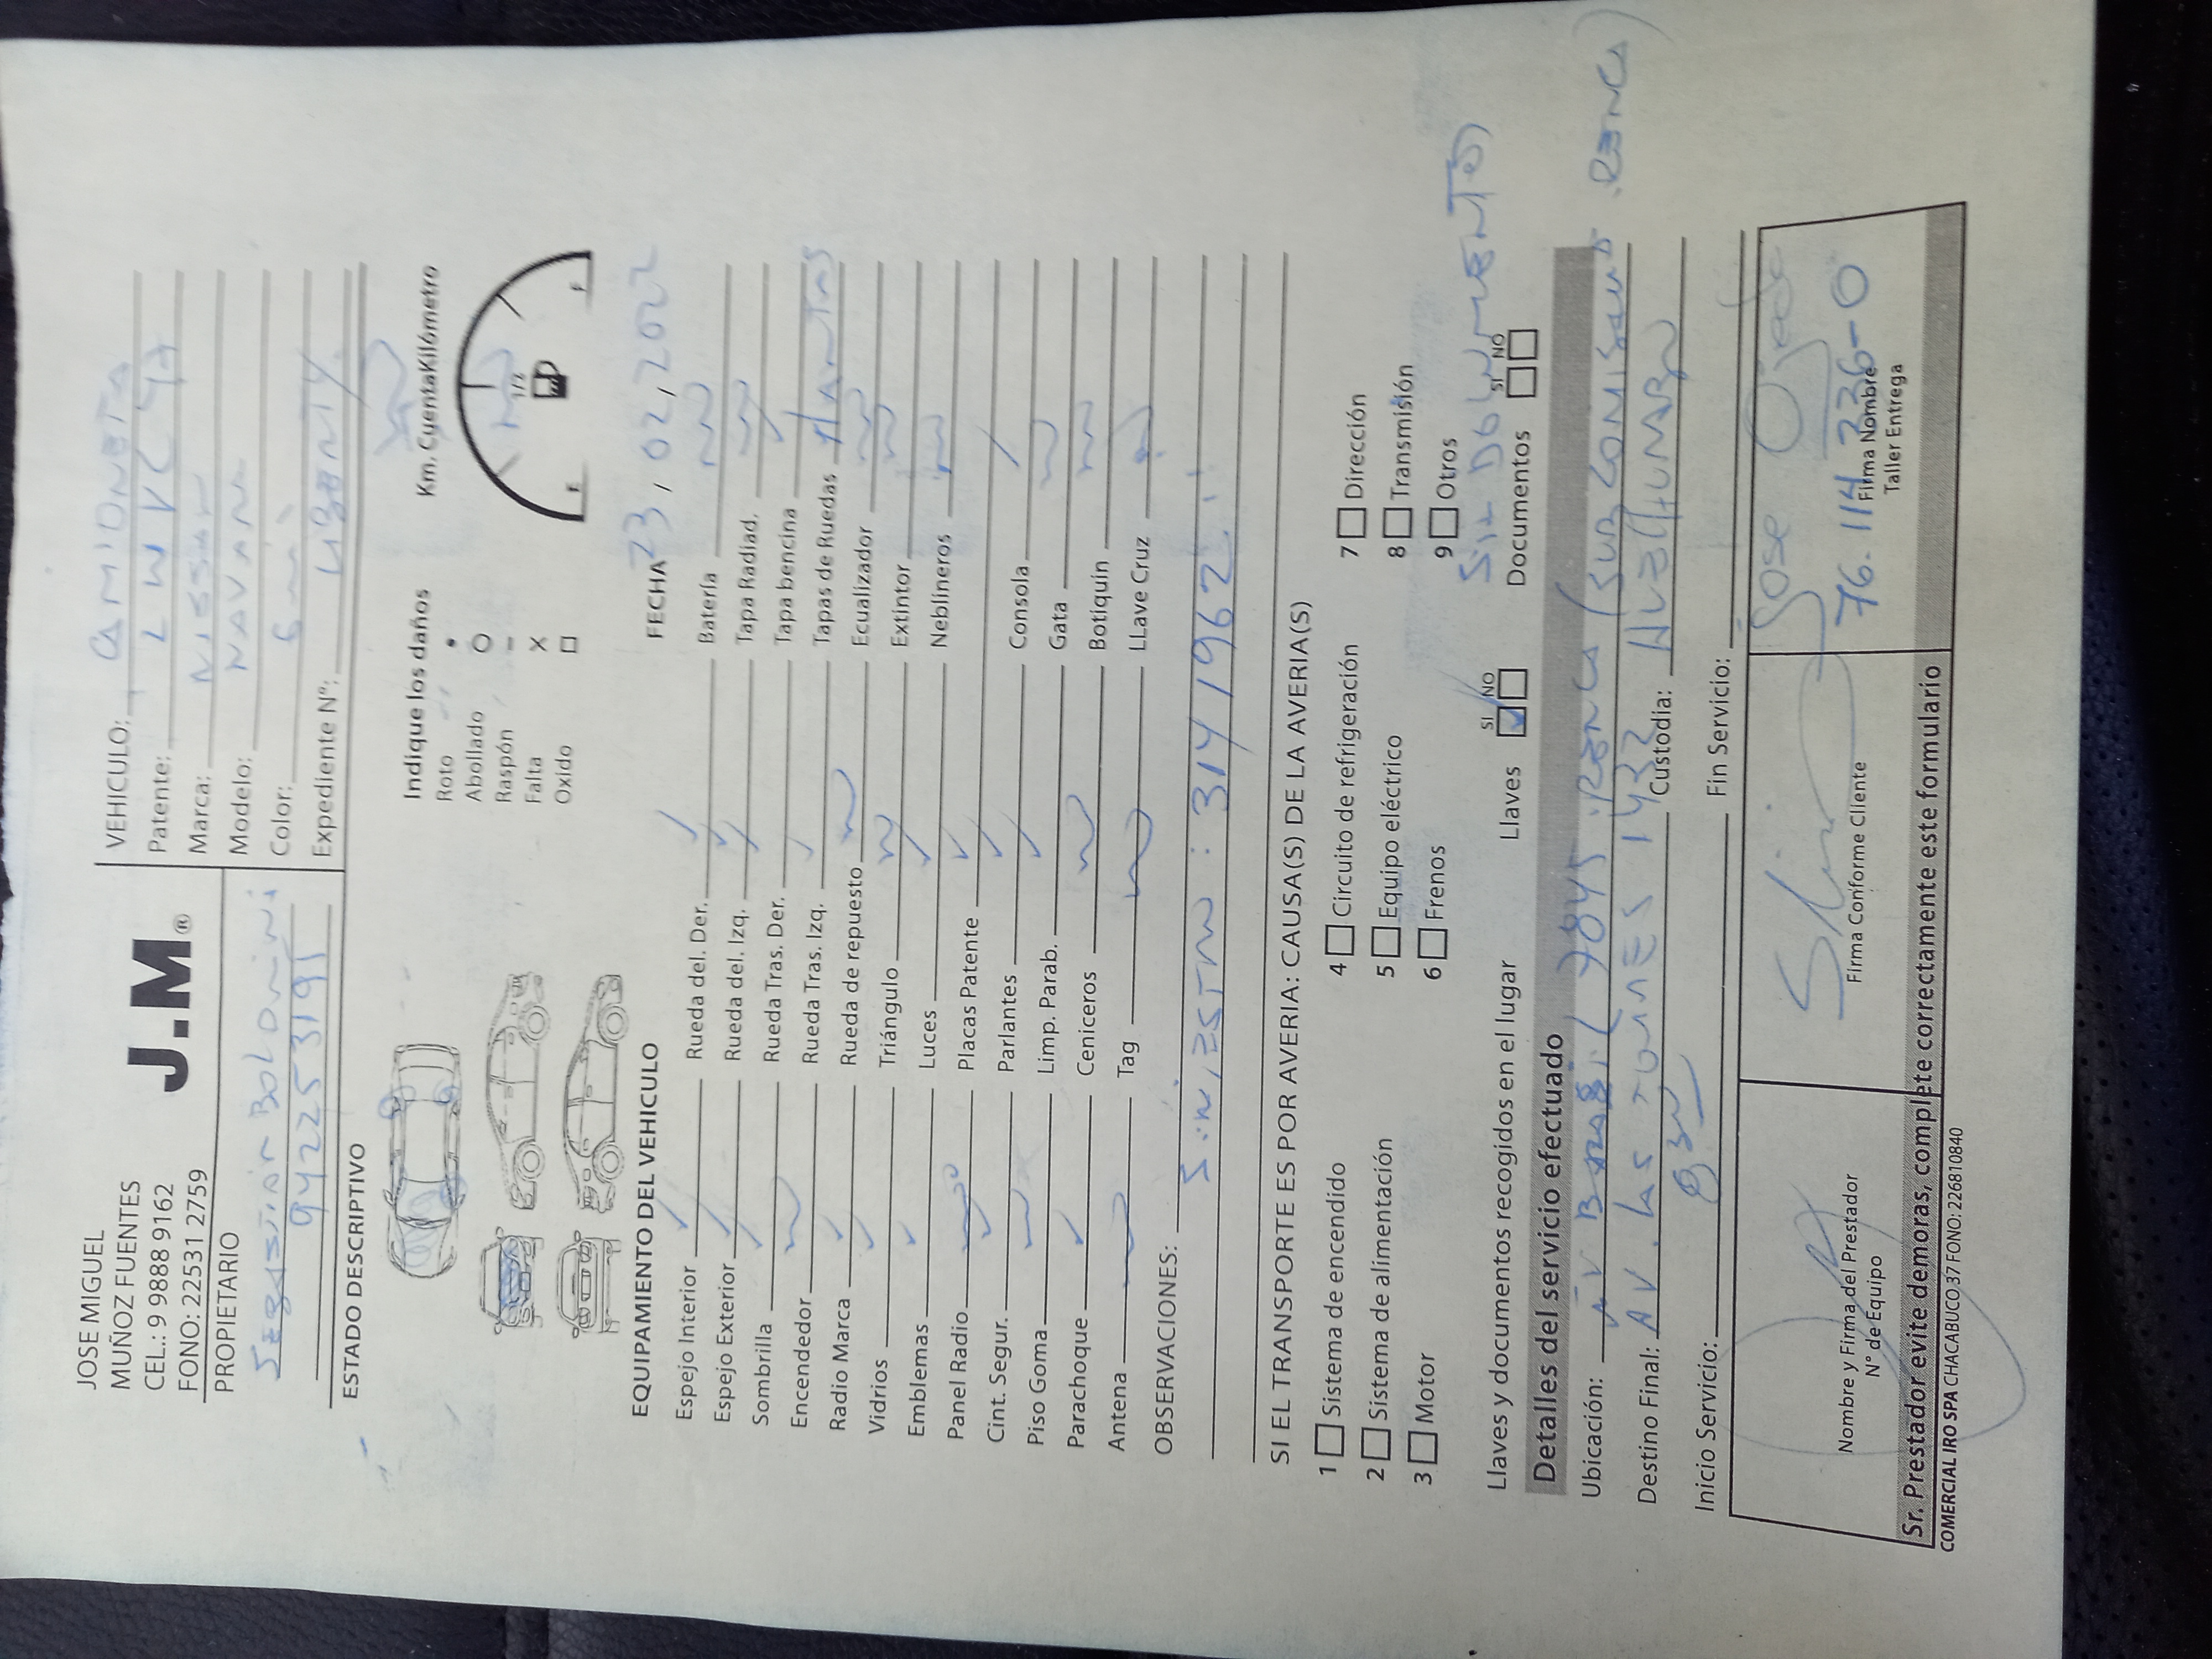 JOSE MIGUEL
MUÑOZ FUENTES
CEL.: 9 9888 9162
FONO: 22531 2759
J.M®
PROPIETARIO
942253191
VEHICULO: CAMIONETA
Patente: LWVC 47
Marca: NISSAN
Modelo: NAVARA
Color:
Expediente Nº: LIBERTY
ESTADO DESCRIPTIVO
Indique los daños
Roto
Abollado
Raspón
Falta
Oxido
Km. CuentaKilómetro
E 1/2 F
EQUIPAMIENTO DEL VEHICULO
FECHA 23,02,2022
Espejo Interior Rueda del. Der. Batería
Espejo Exterior Rueda del. Izq. Tapa Radiad.
Sombrilla Rueda Tras. Der. Tapa bencina
Encendedor Rueda Tras. Izq. Tapas de Ruedas LLANTAS
Radio Marca Rueda de repuesto Ecualizador
Vidrios Triángulo Extintor
Emblemas Luces Neblineros
Panel Radio Placas Patente
Cint. Segur. Parlantes Consola
Piso Goma Limp. Parab. Gata
Parachoque Ceniceros Botiquin
Antena Tag LLave Cruz
OBSERVACIONES:
SINIESTRO : 3141962
SI EL TRANSPORTE ES POR AVERIA: CAUSA(S) DE LA AVERIA(S)
1 Sistema de encendido 4 Circuito de refrigeración 7 Dirección
2 Sistema de alimentación 5 Equipo eléctrico 8 Transmisión
3 Motor 6 Frenos 9 Otros
SIN DOCUMENTOS
Llaves y documentos recogidos en el lugar Llaves SI NO Documentos SI NO
Detalles del servicio efectuado
Ubicación: AV BRASIL 7845 RENCA (SUB COMISARIA RENCA)
Destino Final: AV. LAS TORRES 1432 Custodia: HUECHURABA
Inicio Servicio: Fin Servicio:
Jose Ojeda
76.114.336-0
Nombre y Firma del Prestador
Nº de Equipo
Firma Conforme Cliente
Firma Nombre
Taller Entrega
Sr. Prestador evite demoras, complete correctamente este formulario
COMERCIAL IRO SPA CHACABUCO 37 FONO: 226810840